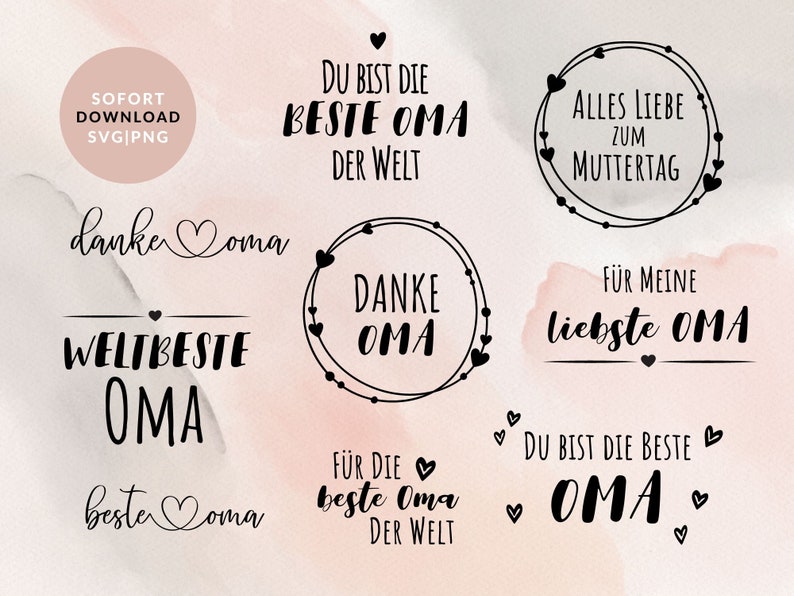 SOFORT
DOWNLOAD
SVG|PNG
DU BIST DIE
BESTE OMA
DER WELT
ALLES LIEBE
ZUM
MUTTERTAG
danke oma
DANKE
OMA
FÜR MEINE
liebste OMA
WELTBESTE
OMA
FÜR DIE
beste Oma
DER WELT
DU BIST DIE BESTE
OMA
beste oma